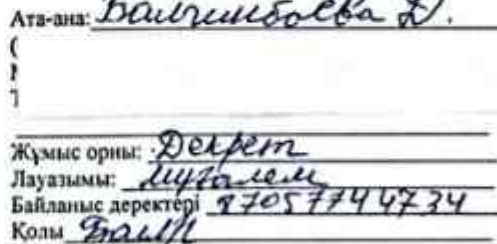 Ата-ана: Балгинбаева Д.
(
Жұмыс орны: Декрет
Лауазымы: мұғалем
Байланыс деректері 87057744734
Қолы